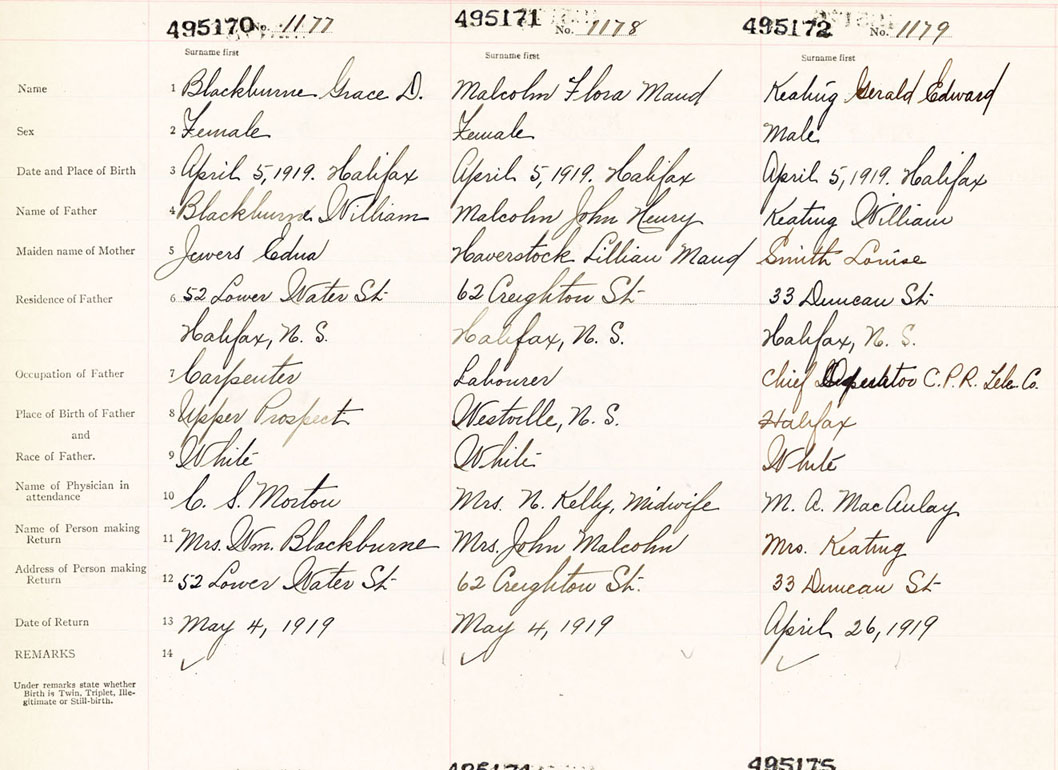 495170 No. 1177 495171 No. 1178 495172 No. 1179
Surname first Surname first Surname first
Name 1 Blackburne Grace D. Malcolm Flora Maud Keating Gerald Edward
Sex 2 Female Female Male
Date and Place of Birth 3 April 5, 1919. Halifax April 5, 1919. Halifax April 5, 1919. Halifax
Name of Father 4 Blackburne William Malcolm John Henry Keating William
Maiden name of Mother 5 Jewers Edna Haverstock Lillian Maud Smith Louise
Residence of Father 6 52 Lower Water St 62 Creighton St 33 Duncan St
Halifax, N. S. Halifax, N. S. Halifax, N. S.
Occupation of Father 7 Carpenter Labourer Chief Operator C.P.R. Tele. Co.
Place of Birth of Father 8 Upper Prospect Westville, N. S. Halifax
and
Race of Father. 9 White White White
Name of Physician in
attendance 10 C. S. Morton Mrs. N. Kelly, Midwife M. A. MacAulay
Name of Person making
Return 11 Mrs. Wm. Blackburne Mrs. John Malcolm Mrs. Keating
Address of Person making
Return 12 52 Lower Water St 62 Creighton St. 33 Duncan St
Date of Return 13 May 4, 1919 May 4, 1919 April 26, 1919
REMARKS 14 ✓ ✓ ✓
Under remarks state whether
Birth is Twin, Triplet, Ille-
gitimate or Still-birth.
495174 495175